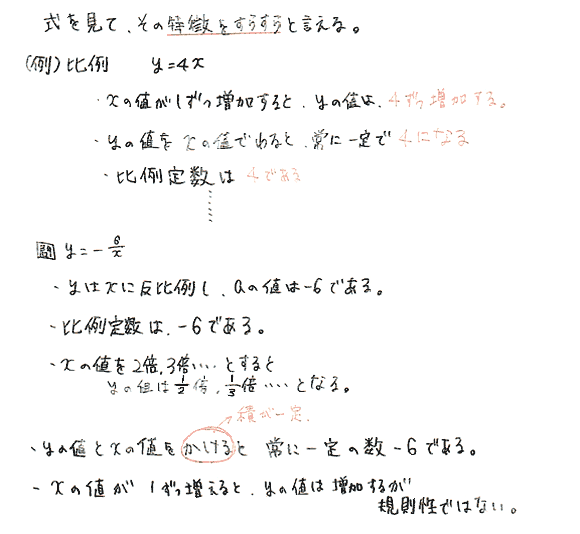 式を見て、その特徴をすらすらと言える。
(例) 比例 y=4x
・xの値が1ずつ増加すると、yの値は、4ずつ増加する。
・yの値をxの値でわると、常に一定で4になる
・比例定数は4である
問 y=-6/x
・yはxに反比例し、aの値は-6である。
・比例定数は、-6である。
・xの値を2倍,3倍‥‥とすると
yの値は1/2倍,1/3倍‥‥となる。
→積が一定.
・yの値とxの値をかけると常に一定の数-6である。
・xの値が1ずつ増えると、yの値は増加するが
規則性ではない。